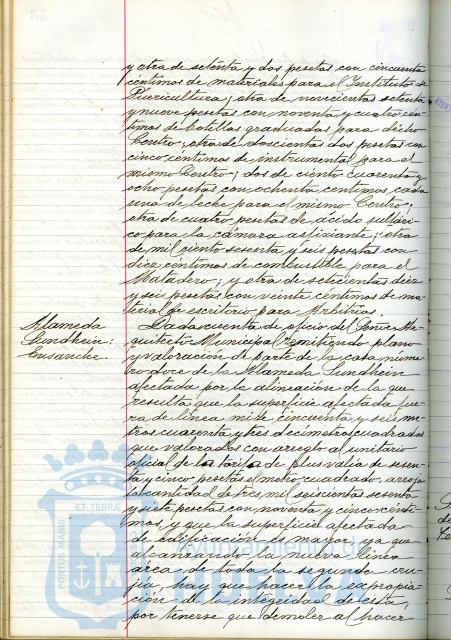 y otra de setenta y dos pesetas con cincuenta
céntimos de materiales para el Instituto de
Puericultura; otra de novecientas setenta
y nueve pesetas con noventa y cuatro cén-
timos de botellas graduadas para dicho
Centro; otra de doscientas dos pesetas con
cinco céntimos de instrumental para el
mismo Centro; dos de ciento cuarenta y
ocho pesetas con ochenta céntimos, cada
una de leche para el mismo Centro;
otra de cuatro pesetas de ácido sulfúri-
co para la cámara asfixiante; otra
de mil ciento sesenta y seis pesetas con
diez céntimos de combustible para el
Matadero; y otra de setecientas diez
y seis pesetas con veinte céntimos de ma-
terial de escritorio para Arbitrios.
Alameda
Sundheim:
Ensanche.
Dada cuenta de oficio del Perito Ar-
quitecto Municipal remitiendo plano
y valoración de parte de la casa núme-
ro doce de la Alameda Sundheim
afectada por la alineación de la que
resulta que la superficie afectada fue-
ra de línea mide cincuenta y seis me-
tros cuarenta y tres decímetros cuadrados
que valorados con arreglo al unitario
oficial de la tarifa de plus valía de sesen-
ta y cinco pesetas el metro cuadrado, arroja
la cantidad de tres mil seiscientas sesenta
y siete pesetas con noventa y cinco cénti-
mos, y que la superficie afectada
de edificación es mayor, ya que
alcanzando la nueva línea
área de toda la segunda cru-
jía, hay que hacer la expropia-
ción de la integridad de esta,
por tenerse que demoler al hacer
PORTUS MARIS ET TERRÆ
Ayuntamiento de
HUELVA